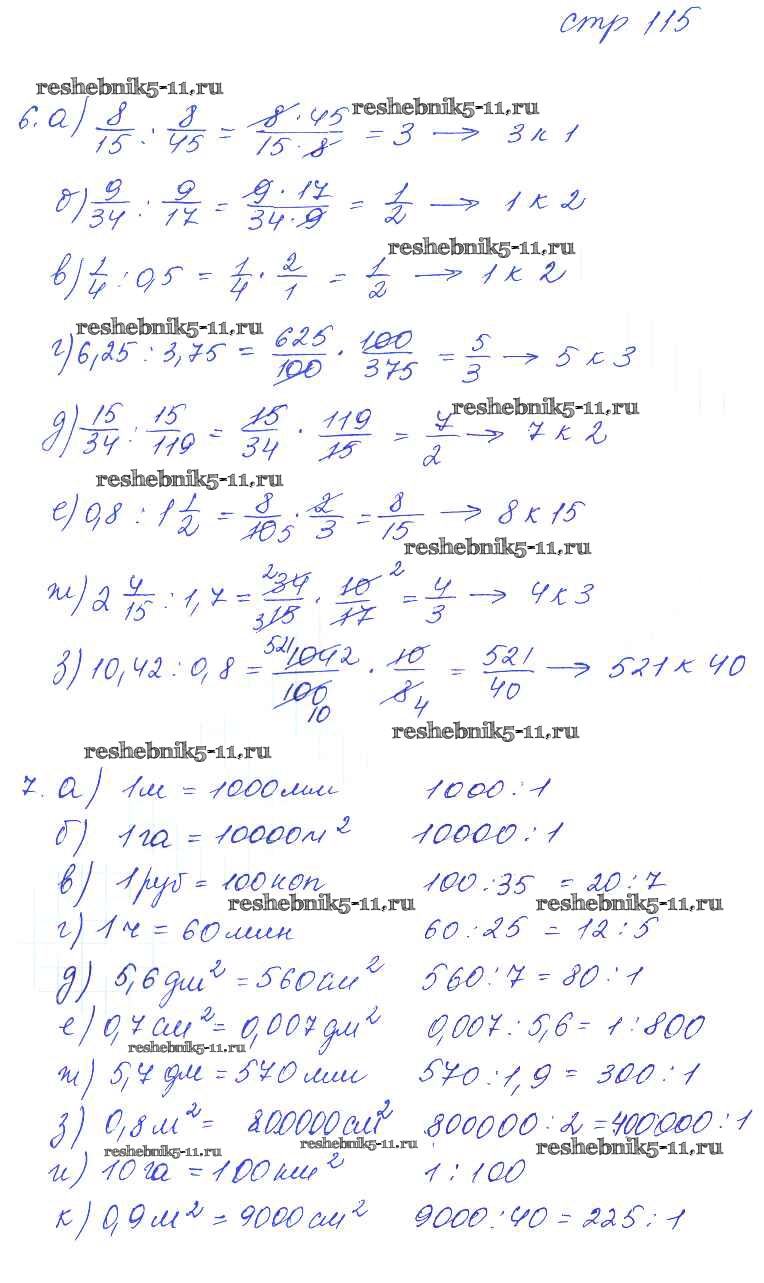 стр 115
reshebnik5-11.ru
reshebnik5-11.ru
6. а) 8/15 : 8/45 = 8·45/15·8 = 3 → 3 к 1
б) 9/34 : 9/17 = 9·17/34·9 = 1/2 → 1 к 2
reshebnik5-11.ru
в) 1/4 : 0,5 = 1/4 · 2/1 = 1/2 → 1 к 2
reshebnik5-11.ru
г) 6,25 : 3,75 = 625/100 · 100/375 = 5/3 → 5 к 3
reshebnik5-11.ru
д) 15/34 : 15/119 = 15/34 · 119/15 = 7/2 → 7 к 2
reshebnik5-11.ru
е) 0,8 : 1 1/2 = 8/10 5 · 2/3 = 8/15 → 8 к 15
reshebnik5-11.ru
ж) 2 4/15 : 1,7 = 2 34/3 15 · 10 2/17 = 4/3 → 4 к 3
з) 10,42 : 0,8 = 521 1042/100 10 · 10/8 4 = 521/40 → 521 к 40
reshebnik5-11.ru
reshebnik5-11.ru
7. а) 1м = 1000мм 1000 : 1
б) 1га = 10000м² 10000 : 1
в) 1руб = 100коп 100 : 35 = 20 : 7
reshebnik5-11.ru reshebnik5-11.ru
г) 1ч = 60мин 60 : 25 = 12 : 5
д) 5,6дм² = 560см² 560 : 7 = 80 : 1
е) 0,7см² = 0,007дм² 0,007 : 5,6 = 1 : 800
reshebnik5-11.ru
ж) 5,7дм = 570мм 570 : 1,9 = 300 : 1
з) 0,8м² = 800000см² 800000 : 2 = 400000 : 1
reshebnik5-11.ru reshebnik5-11.ru reshebnik5-11.ru
и) 10га = 100км² 1 : 100
к) 0,9м² = 9000см² 9000 : 40 = 225 : 1